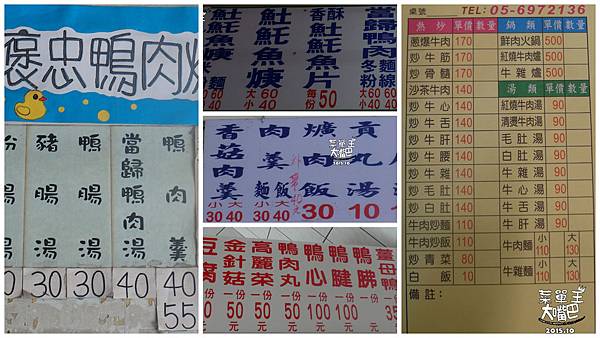 褒忠鴨肉
豬腸湯 30
鴨腸湯 30
當歸鴨肉湯 40
鴨肉羹 40 55
魠魚羹
大60
小40
魠魚羹
大60
小40
香酥
魠魚片
每份50
當歸鴨肉
冬粉 麵線
大60
小40
香菇肉羹
大40
小30
肉羹
麵 飯
大40
小30
爌肉飯
30
貢丸湯
10
豆腐
金針菇 一份50元
高麗菜 一份50元
鴨肉丸 一份50元
鴨心 一份100元
鴨腱 一份100元
鴨胇 一份100元
薑母鴨
桌號 TEL: 05-6972136
熱炒 單價 數量
蔥爆牛肉 170
炒牛筋 170
炒骨髓 170
沙茶牛肉 140
炒牛心 140
炒牛舌 140
炒牛肝 140
炒牛腰 140
炒牛雜 140
炒毛肚 140
炒白肚 140
牛肉炒麵 110
牛肉炒飯 110
炒青菜 80
白飯 10
鍋類 單價 數量
鮮肉火鍋 500
紅燒牛肉爐 500
牛雜爐 500
湯類 單價 數量
紅燒牛肉湯 90
清燙牛肉湯 90
毛肚湯 90
白肚湯 90
牛雜湯 90
牛心湯 90
牛舌湯 90
牛肝湯 90
牛肉麵 小110 大130
牛雜麵 小110 大130
備註:
菜單王
大嘴巴
2015.10